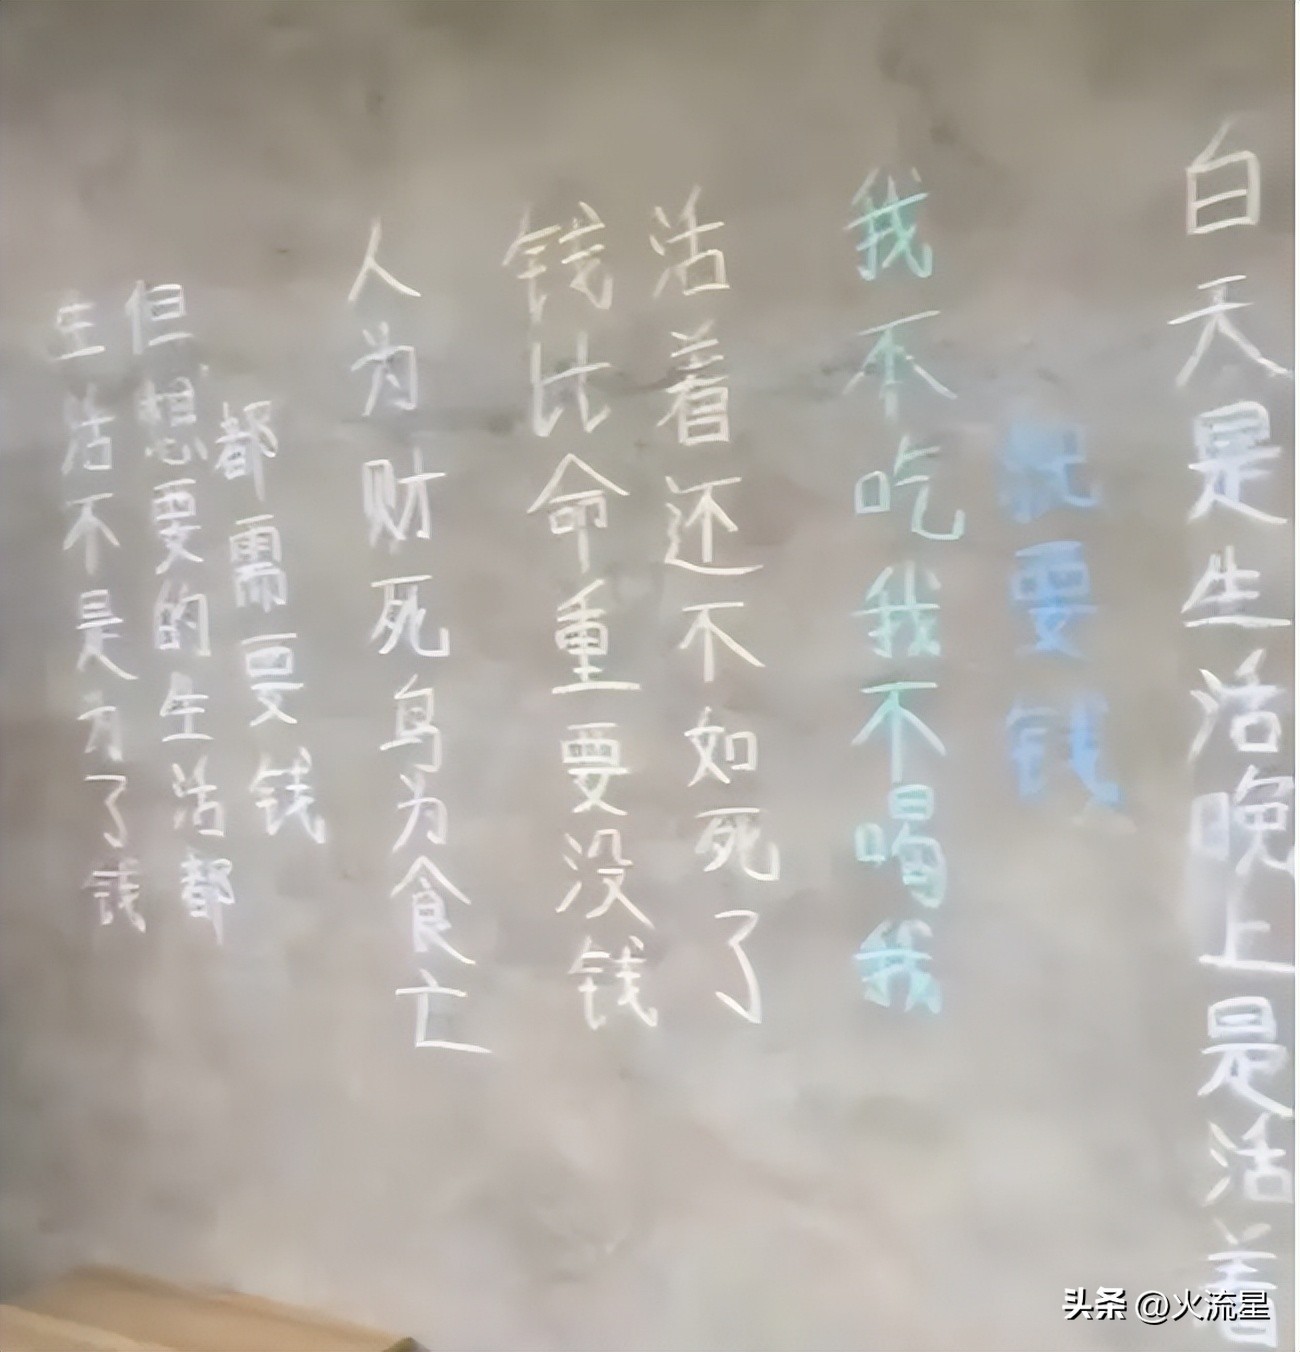 生活不是为了钱
但想要的生活都
都需要钱
人为财死鸟为食亡
钱比命重要没钱
活着还不如死了
我不吃我不喝我
就要钱
白天是生活晚上是活着
头条 @火流星